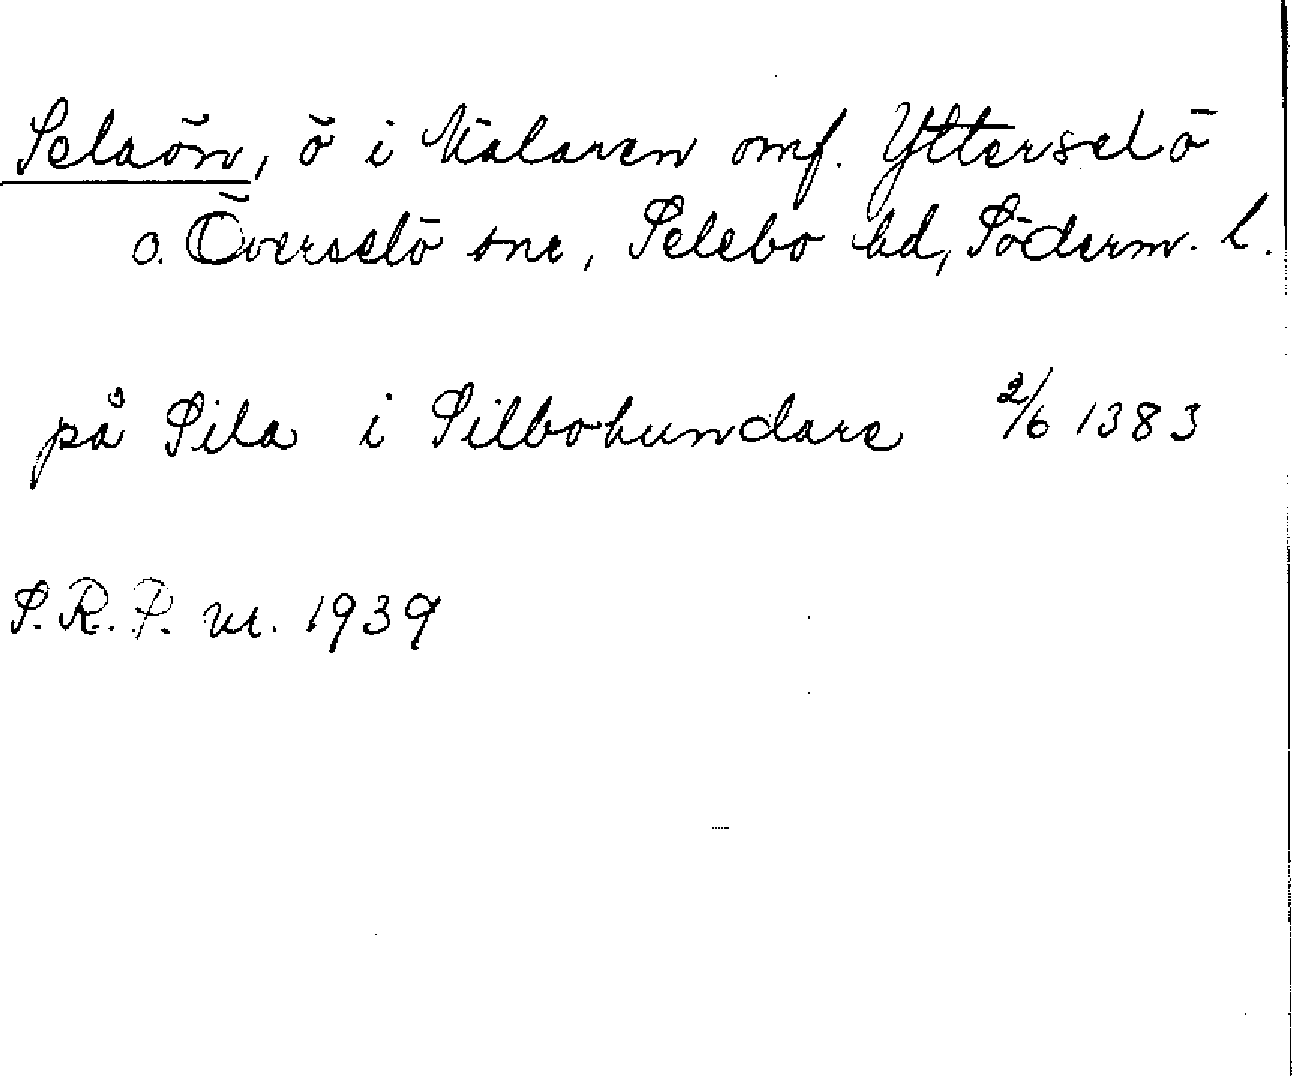 Selaön, ö i Mälaren omf. Ytterselö
o. Överselö snr, Selebo hd, Söderm. l.
på Sila i Silbohundare 2/6 1383
S.R.P. nr. 1939